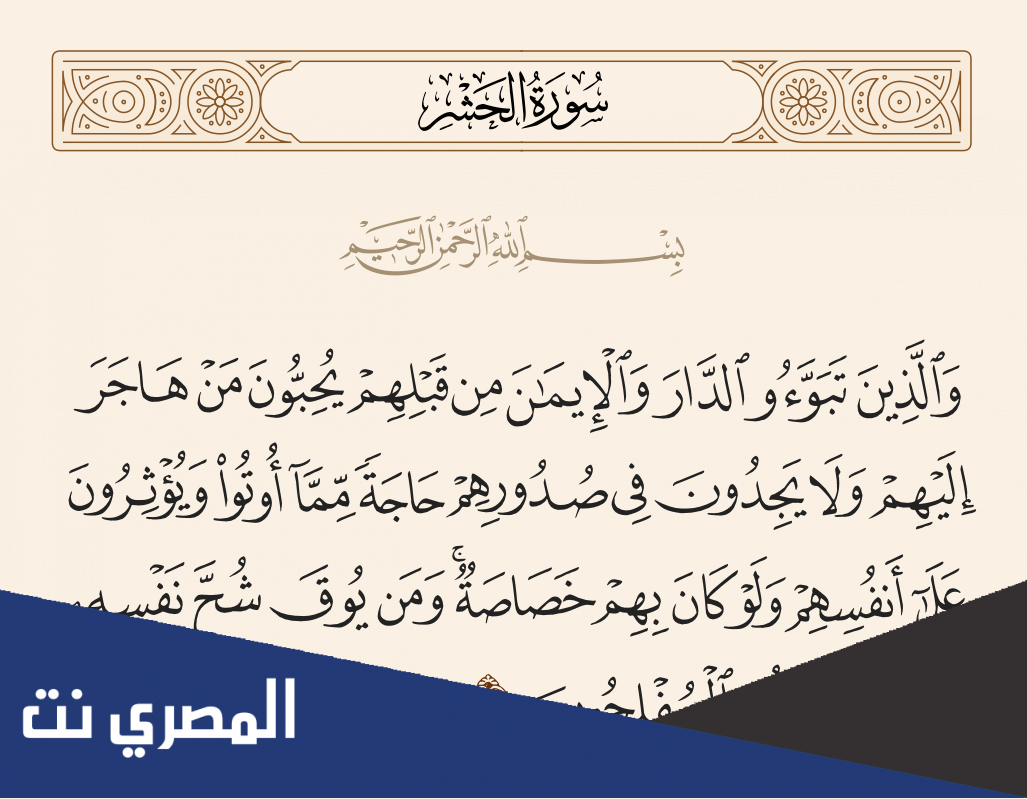 سُورَةُ الحَشْرِ
بِسْمِ ٱللَّهِ ٱلرَّحْمَٰنِ ٱلرَّحِيمِ
وَٱلَّذِينَ تَبَوَّءُو ٱلدَّارَ وَٱلْإِيمَٰنَ مِن قَبْلِهِمْ يُحِبُّونَ مَنْ هَاجَرَ
إِلَيْهِمْ وَلَا يَجِدُونَ فِى صُدُورِهِمْ حَاجَةً مِّمَّآ أُوتُوا۟ وَيُؤْثِرُونَ
عَلَىٰٓ أَنفُسِهِمْ وَلَوْ كَانَ بِهِمْ خَصَاصَةٌ ۚ وَمَن يُوقَ شُحَّ نَفْسِهِۦ
ٱلْمُفْلِحُونَ
المصري نت